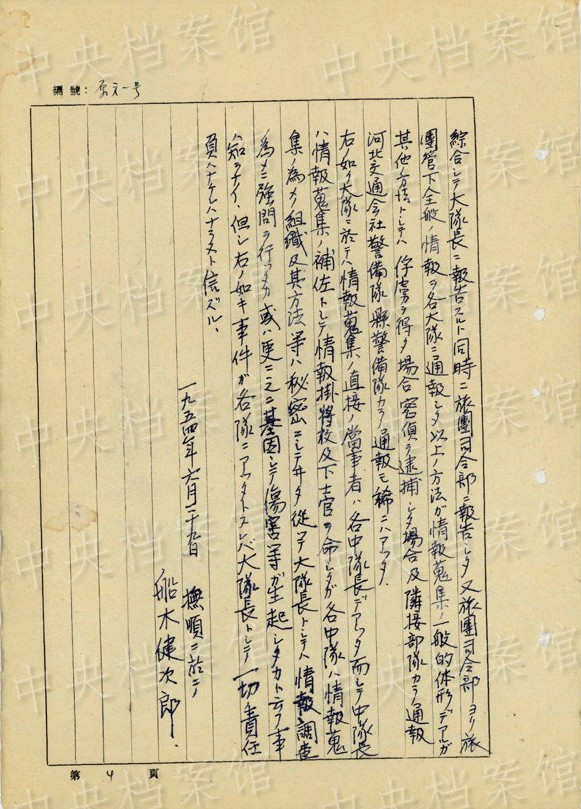 編號：原文一号
綜合シテ大隊長ニ報告スルト同時ニ旅團司令部ニ報告シタ又旅團司令部ヨリ旅
團管下全般ノ情報ヲ各大隊ニ通報シタ以上ノ方法ガ情報蒐集ノ一般的体形デアルガ
其他ノ方法トシテハ俘虜ヲ得タ場合密偵ヲ逮捕シタ場合及隣接部隊カラノ通報
河北交通会社警備隊縣警備隊カラノ通報モ稀ニハアツタ、
右ノ如ク大隊ニ於テハ情報蒐集ノ直接ノ當事者ハ各中隊長デアツタ而シテ中隊長
ハ情報蒐集ノ補佐トシテ情報掛將校及下士官ヲ命シタガ各中隊ハ情報蒐
集ノ為メノ組織及其方法等ハ秘密ニシテヰタ従ツテ大隊長トシテハ情報調査
ノ為メニ強問ヲ行ツタカ或ハ更ニ之ニ基因シテ傷害等ガ生起シタカト云フ事
ハ知ラナイ、但シ右ノ如キ事件ガ各隊ニアツタトスレバ大隊長トシテ一切ノ責任ヲ
負ハナケレハナラヌト信ズル、
一九五四年六月二十九日
撫順ニ於テ
船木健次郎
第 4 頁
中央档案馆